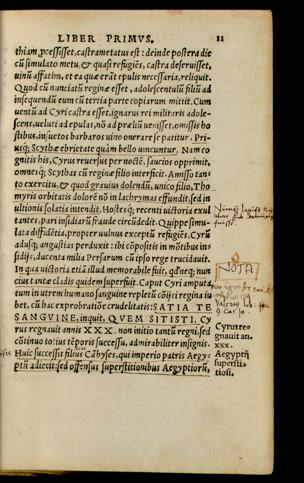 LIBER PRIMVS. 11
thiam ꝓcessisset, castrametatus est: deinde postera die
cū simulato metu, & quasi refugiēs, castra deseruisset,
uinū affatim, et ea quæ erāt epulis necessaria, reliquit.
Quod cū nunciatū reginæ esset, adolescentulū filiū ad
insequendū eum cū tertia parte copiarum mittit. Cum
uentū ad Cyri castra esset, ignarus rei militaris adole-
scens, ueluti ad epulas, nō ad præliū uenisset, omissis ho
stibus, insuetos barbaros uino onerare se patitur. Pri-
usq; Scythæ ebrietate quàm bello uincuntur. Nam co
gnitis his, Cyrus reuersus per noctē, saucios opprimit,
omnesq; Scythas cū reginæ filio interficit. Amisso tan-
to exercitu, & quod grauius dolendū, unico filio, Tho
myris orbitatis dolorē nō in lachrymas effundit, sed in
ultionis solatia intendit. Hostesq; recenti uictoria exul
tantes, pari insidiarū fraude circūdedit. Quippe simu-
lata diffidētia, propter uulnus exceptū refugiēs, Cyrū
adusq; angustias perduxit: ibi cōpositis in mōtibus in-
sidijs, ducenta milia Persarum cū ipso rege trucidauit.
In qua uictoria etiā illud memorabile fuit, qđ neq; nun
cius tantæ cladis quidem superfuit. Caput Cyri amputa
tum in utrem humano sanguine repletū cōijci regina iu
bet, cū hac exprobratiōe crudelitatis: SATIA TE
SANGVINE, inquit, QVEM SITISTI. Cy
rus regnauit annis XXX. non initio tantū regni, sed
cōtinuo totius tēporis successu, admirabiliter insignis.
Huic successit filius Cābyses, qui imperio patris Aegy-
ptū adiecit: sed offensus superstitionibus Aegyptiorū,
NOTA
Cyrus re-
gnauit an.
xxx.
Aegyptiī
supersti-
tiosi.